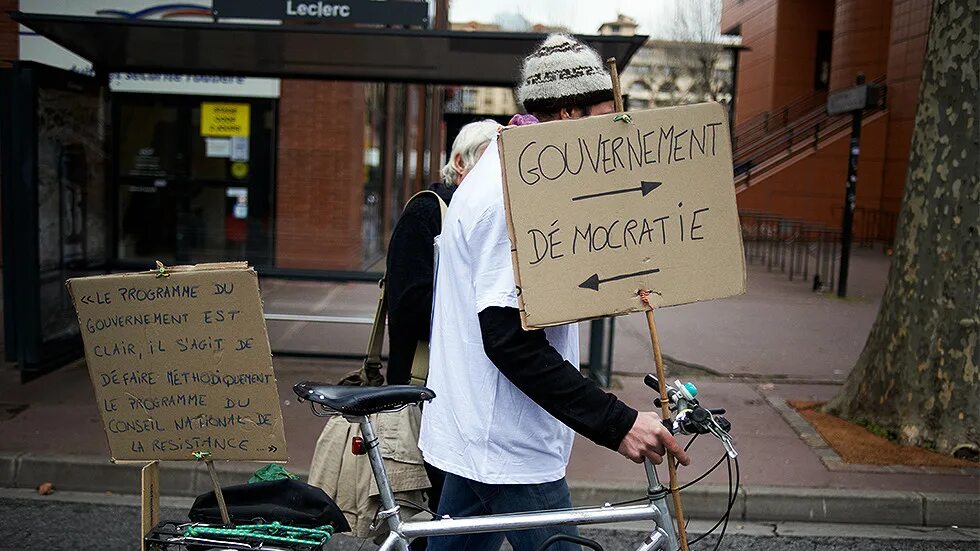 Leclerc
GOUVERNEMENT
DÉMOCRATIE
« LE PROGRAMME DU
GOUVERNEMENT EST
CLAIR, IL S'AGIT DE
DÉFAIRE MÉTHODIQUEMENT
LE PROGRAMME DU
CONSEIL NATIONAL DE
LA RESISTANCE ... »